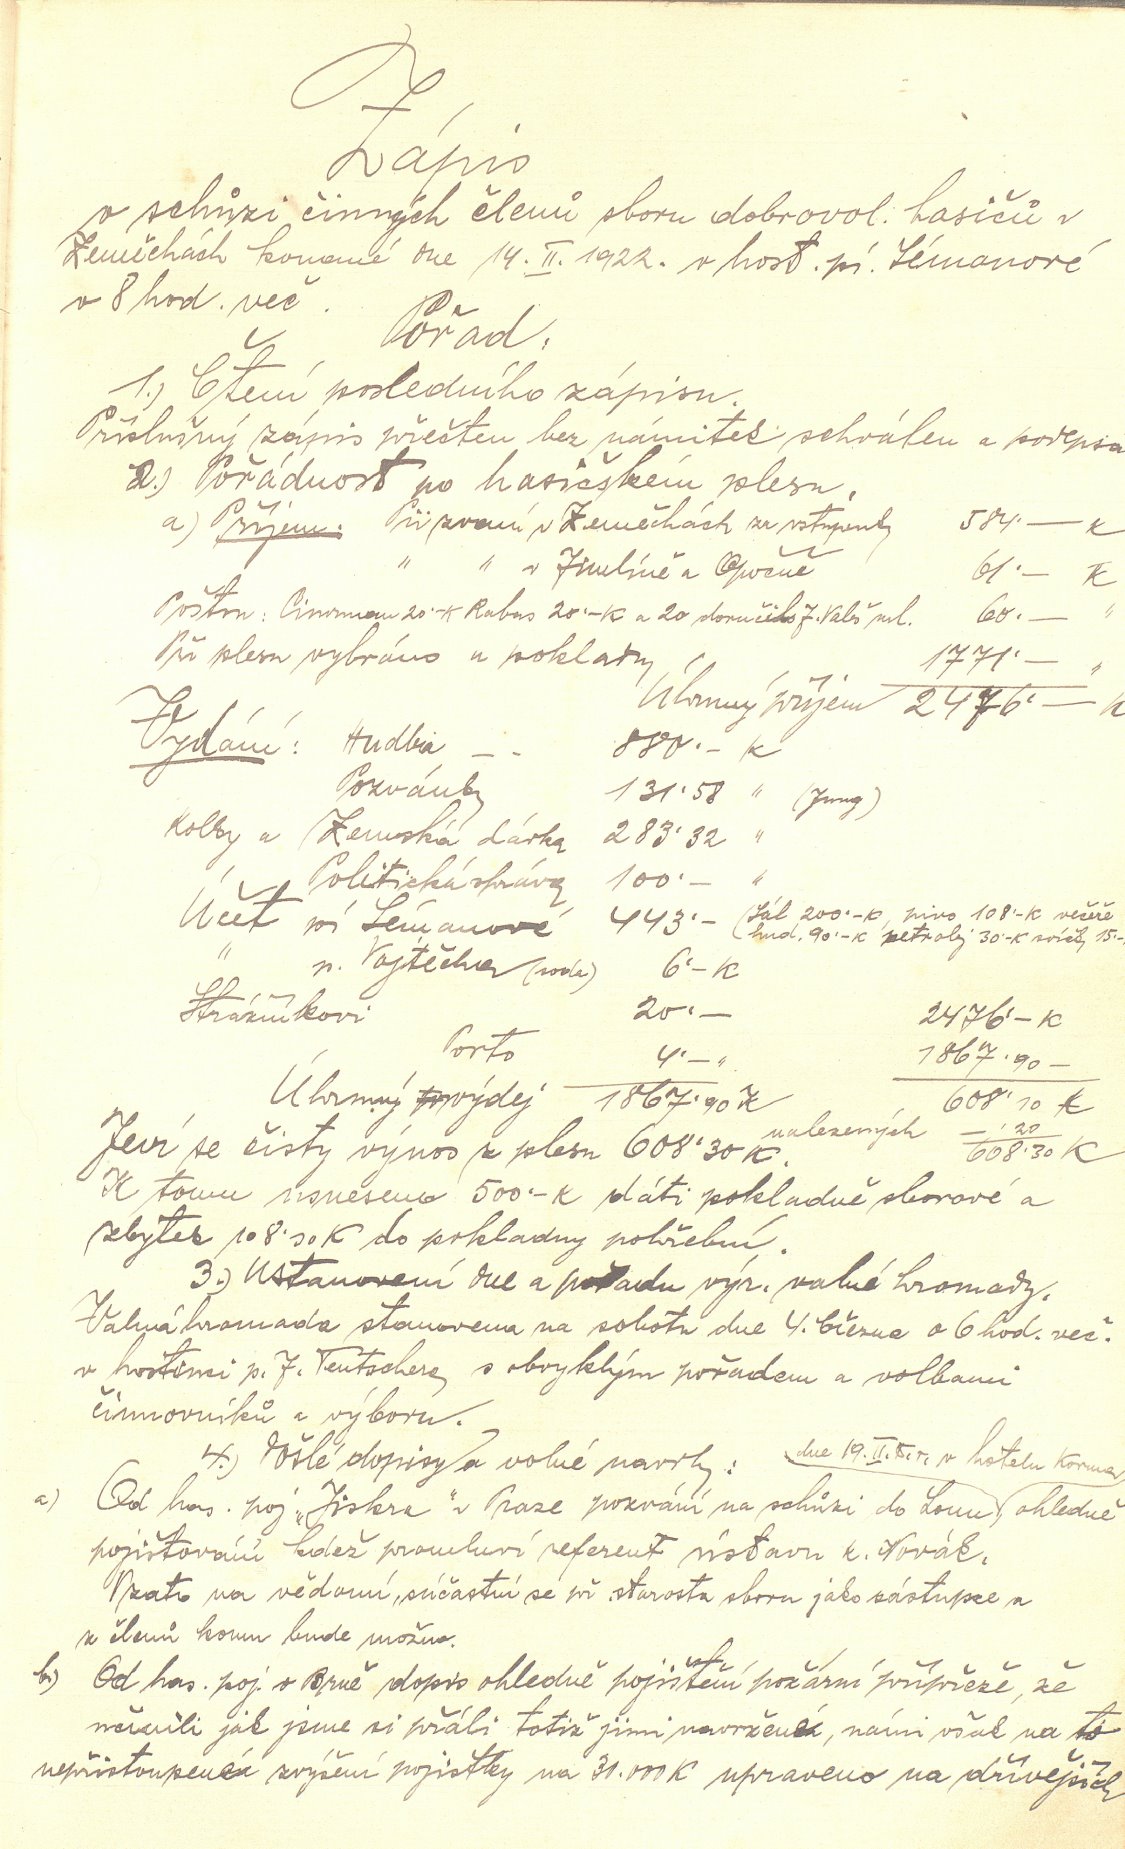 Zápis
v schůzi činných členů sboru dobrovol. hasičů v
Zeměchách konané dne 14. II. 1922. v host. pí. Lémanové
v 8 hod. več.
Pořad:
1.) Čtení posledního zápisu.
Příslušný zápis přečten bez námitek schválen a podepsa
2.) Pořádnost po hasičském plesu.
a) Příjem: Při zvaní v Zeměchách za vstupenky 584·— K
" " v Jimlíně a Opočně 61·— K
Poštou: Cinerman 20·-K Rabas 20·-K a 20 doručil J. Valeš ml. 60·— "
Při plesu vybráno u pokladny 1771·— "
Úhrnný příjem 2476·— K
Vydání: Hudba — - 880·- K
Pozvánky 131·58 " (Jung)
Kolky a Zemská dávka 283·32 "
Politická správa 100·— "
Účet pí Lémanové 443·— (Sál 200·-K, pivo 108·-K večeře
hud. 90·-K petrolej 30·-K svíčky 15·-
" p. Vojtěcha (soda) 6·-K
Strážníkovi 20·— 2476·-K
Porto 4·—" 1867·90 —
Úhrnný výdej 1867·90 K 608·10 K
nalezených —·20
Jeví se čistý výnos z plesu 608·30 K. 608·30 K
K tomu usneseno 500·-K dáti pokladně sborové a
zbytek 108·30 K do pokladny pohřební.
3.) Ustanovení dne a pořadu výr. valné hromady.
Valná hromada stanovena na sobotu dne 4. března o 6 hod. več.
v hostinci p. J. Teutschera s obvyklým pořadem a volbami
činovníků a výboru.
4.) Došlé dopisy a volné navrhy:
dne 19. II. t. r. v hotelu Korman
a) Od has. poj. „Jiskra“ v Praze pozvání na schůzi do Loun, ohledně
pojišťování kdež promluví referent ústavu k. Novák.
Vzato na vědomí, súčastní se př. starosta sboru jako zástupce a
z členů komu bude možno.
b) Od has. poj. v Brně dopis ohledně pojištění požární přípřeže, že
neučili jak jsme si přáli totiž jimi navržená, námi však na to
nepřistoupená zvýšení pojistky na 30.000 K upraveno na dřívějších